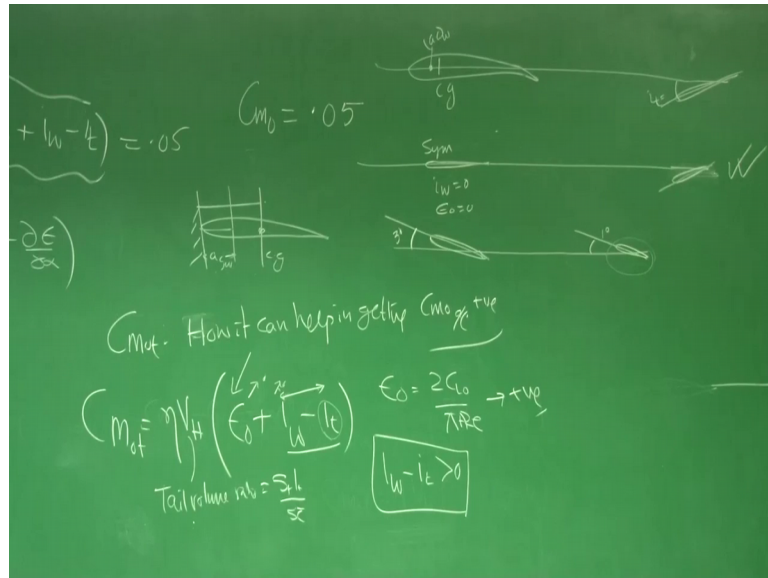 + i_w - i_t) = .05
C_m₀ = .05
cg
i_t
Sym
i_w = 0
ε₀ = 0
- ∂ε/∂α)
cg
3°
1°
C_m₀t. How it can help in getting C_m₀ +ve
C_m₀t = ηV_H (ε₀ + i_w - i_t)
ε₀ = 2C_L₀/πARe → +ve
Tail volume ratio = S_t l_t/S c̄
i_w - i_t > 0